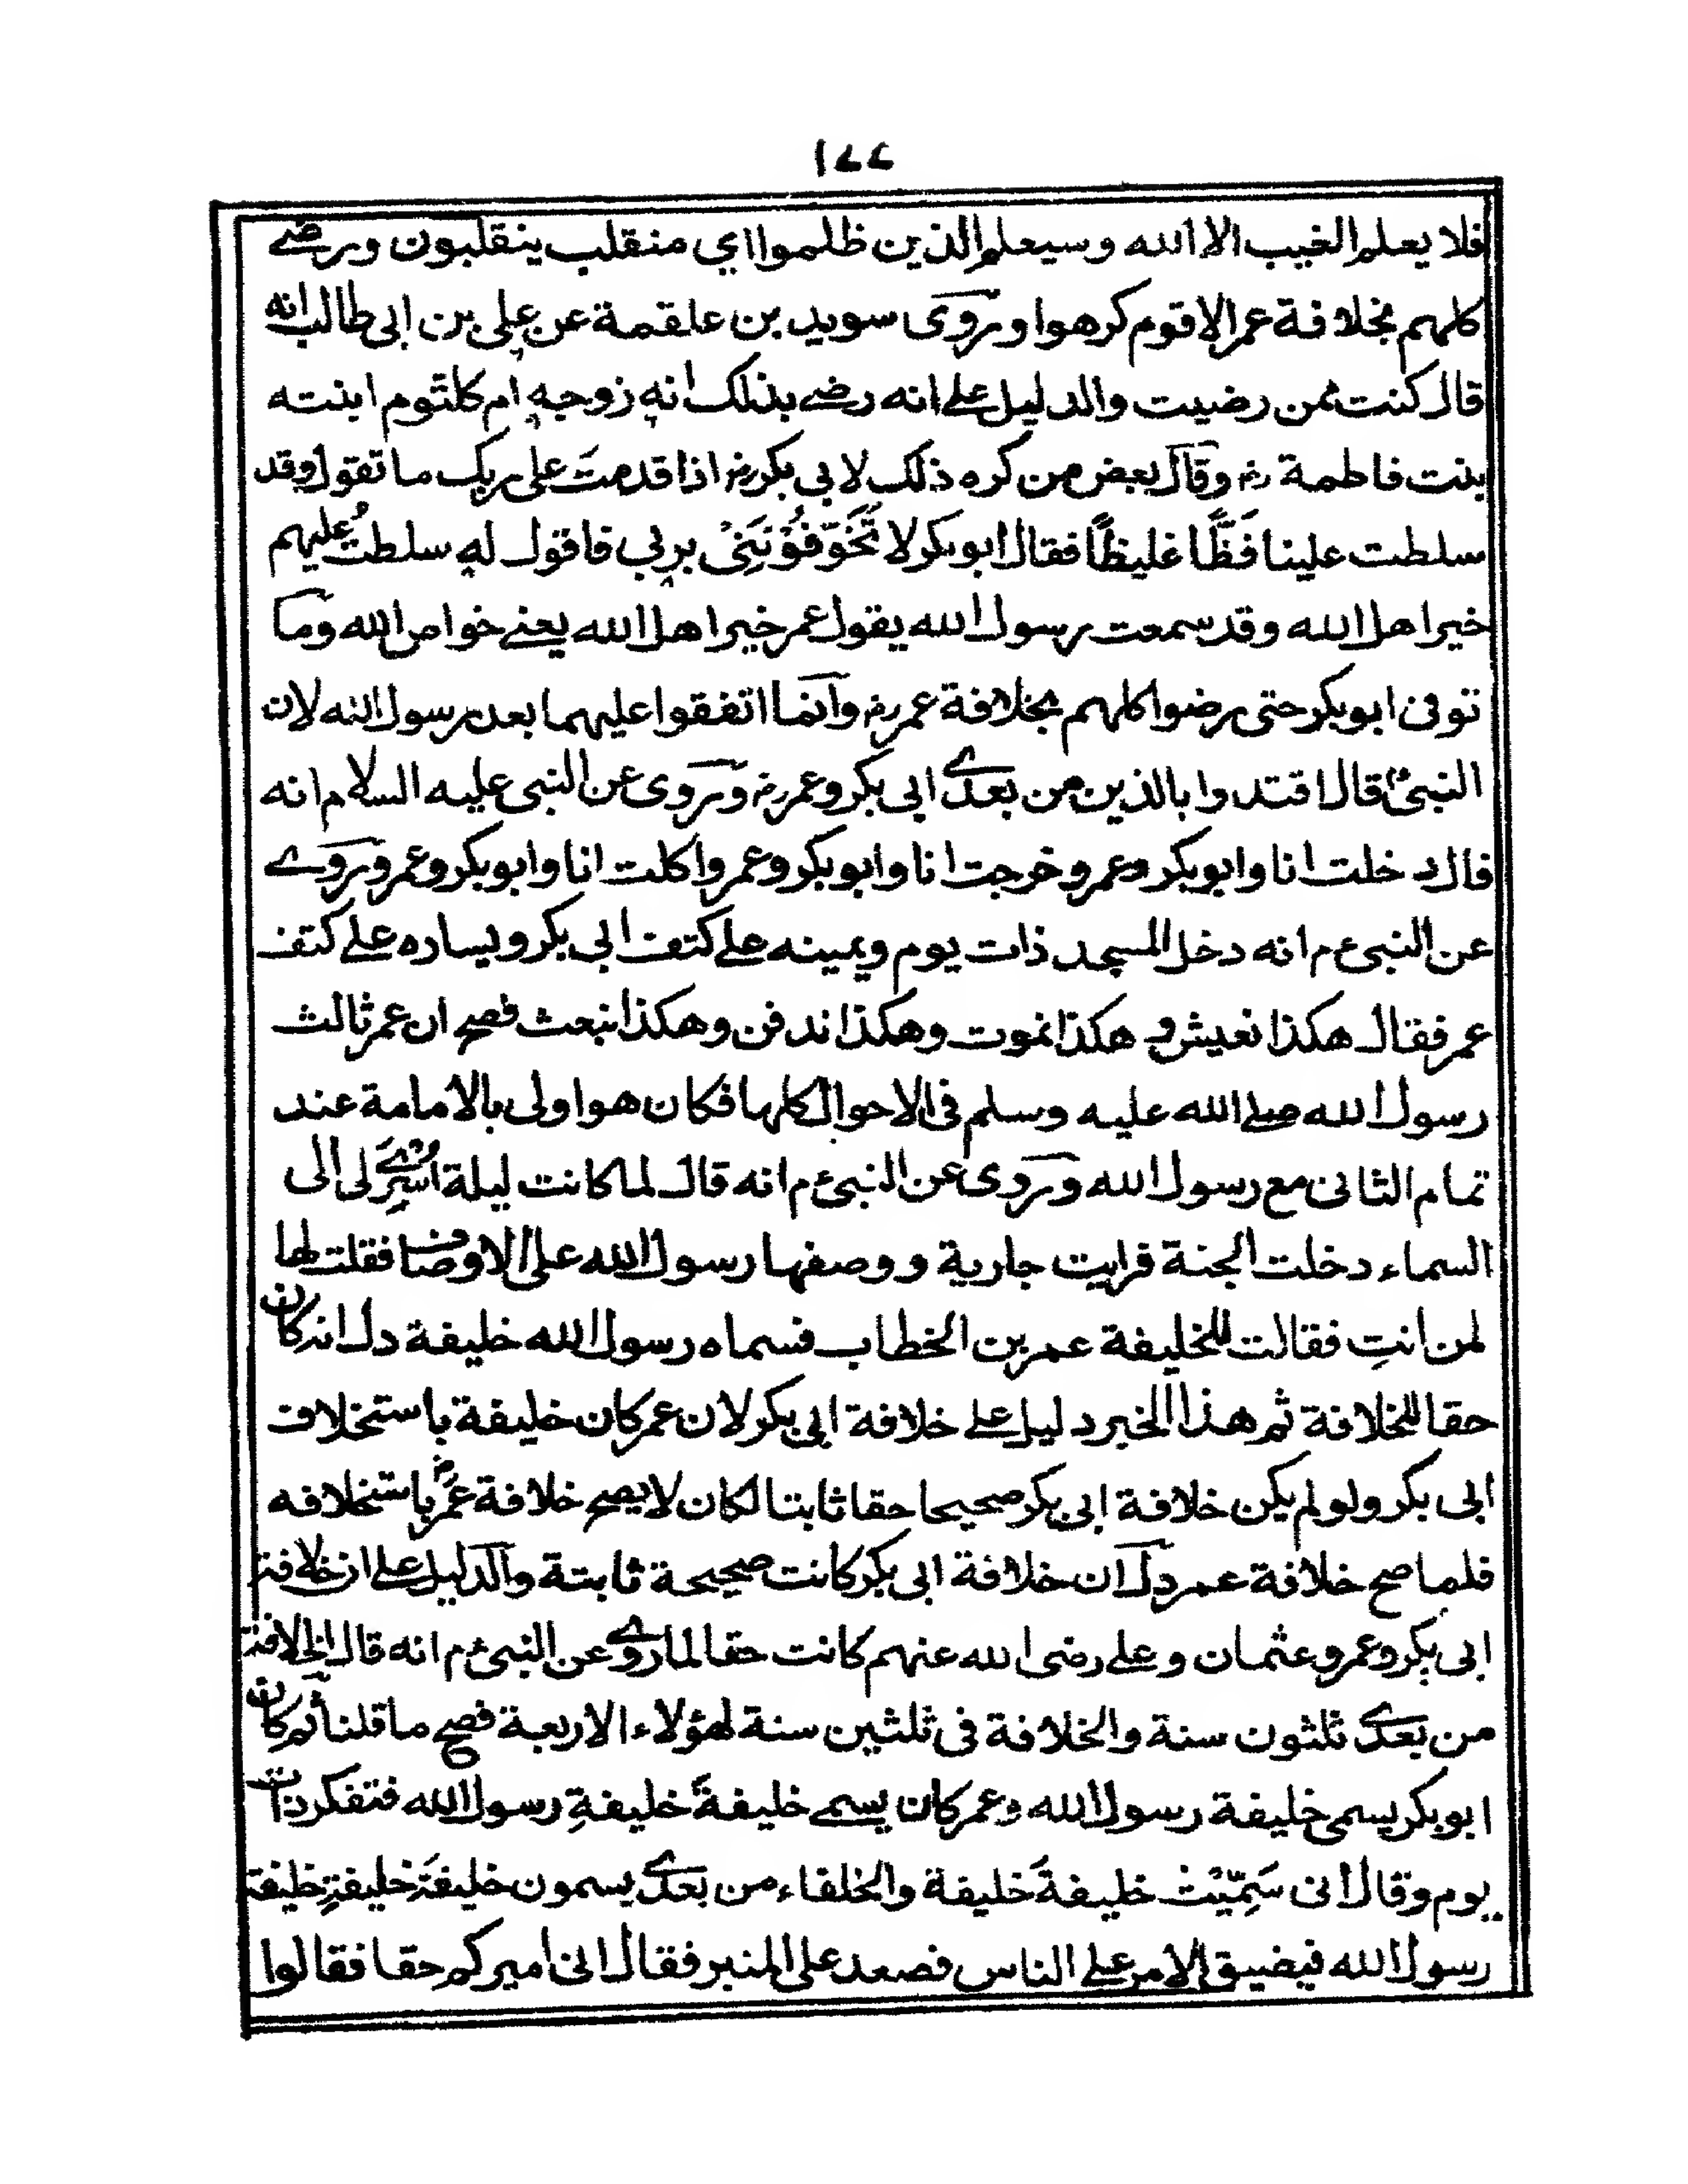 ١٧٧
فلا يعلم الغيب الا الله وسيعلم الذين ظلموا اي منقلب ينقلبون ورضے
كلهم بخلافة عمر الا قوم كرهوا وروى سويد بن علقمة عن علي بن ابى طالب انه
قال كنت ثمن رضيت والدليل علے انه رضے بذلك انه زوجه ام كلثوم ابنته
بنت فاطمة رض وقال بعض من كره ذلك لابي بكر رض اذا قدمتَ على ربك ما تقول وقد
سلطت علينا فَظًّا غليظًا فقال ابو بكر لا تُخَوِّفُوْنَنِىْ بربي فاقول له سلطتُ عليهم
خير اهل الله وقد سمعت رسول الله يقول عمر خير اهل الله يعنے خواص الله وما
توفى ابو بكر حتى رضوا كلهم بخلافة عمر رض وانما اتفقوا عليهما بعد رسول الله لان
النبى ؐ قال اقتدوا بالذين من بعدے ابى بكر وعمر رض وروى عن النبى عليه السلام انه
قال دخلت انا وابو بكر وعمر وخرجت انا وابو بكر وعمر واكلت انا وابو بكر وعمر وروے
عن النبى ء م انه دخل المسجد ذات يوم ويمينه علے كتف ابى بكر ويساره علے كتف
عمر فقال هكذا نعيش و هكذا نموت وهكذا ندفن وهكذا نبعث فصح ان عمر ثالث
رسول الله صلے الله عليه وسلم فى الاحوال كلها فكان هو اولى بالامامة عند
تمام الثانى مع رسول الله وروى عن النبى ء م انه قال لما كانت ليلة اُسْرِىَ لى الى
السماء دخلت الجنة فرايت جارية ووصفها رسول الله على الاوصاف فقلت لها
لمن انتِ فقالت للخليفة عمر بن الخطاب فسماه رسول الله خليفة دل انه كان
حقا للخلافة ثم هذا الخبر دليل علے خلافة ابى بكر لان عمر كان خليفة باستخلاف
ابى بكر ولو لم يكن خلافة ابى بكر صحيحا حقا ثابتا لكان لا يصح خلافة عمر رض باستخلافه
فلما صح خلافة عمر دل ان خلافة ابى بكر كانت صحيحة ثابتة والدليل علے ان خلافة
ابى بكر وعمر وعثمان و علے رضى الله عنهم كانت حقا لما روے عن النبى ء م انه قال الخلافة
من بعدے ثلثون سنة والخلافة فى ثلثين سنة لهؤلاء الاربعة فصح ما قلنا ثم كان
ابو بكر يسمى خليفة رسول الله وعمر كان يسمے خليفةَ خليفةِ رسول الله فتفكر ذات
يوم وقال انى سَمَّيْتُ خليفةَ خليفة والخلفاء من بعدے يسمون خليفةَ خليفةِ خليفة
رسول الله فيضيق الامر علے الناس فصعد على المنبر فقال انى اميركم حقا فقالوا